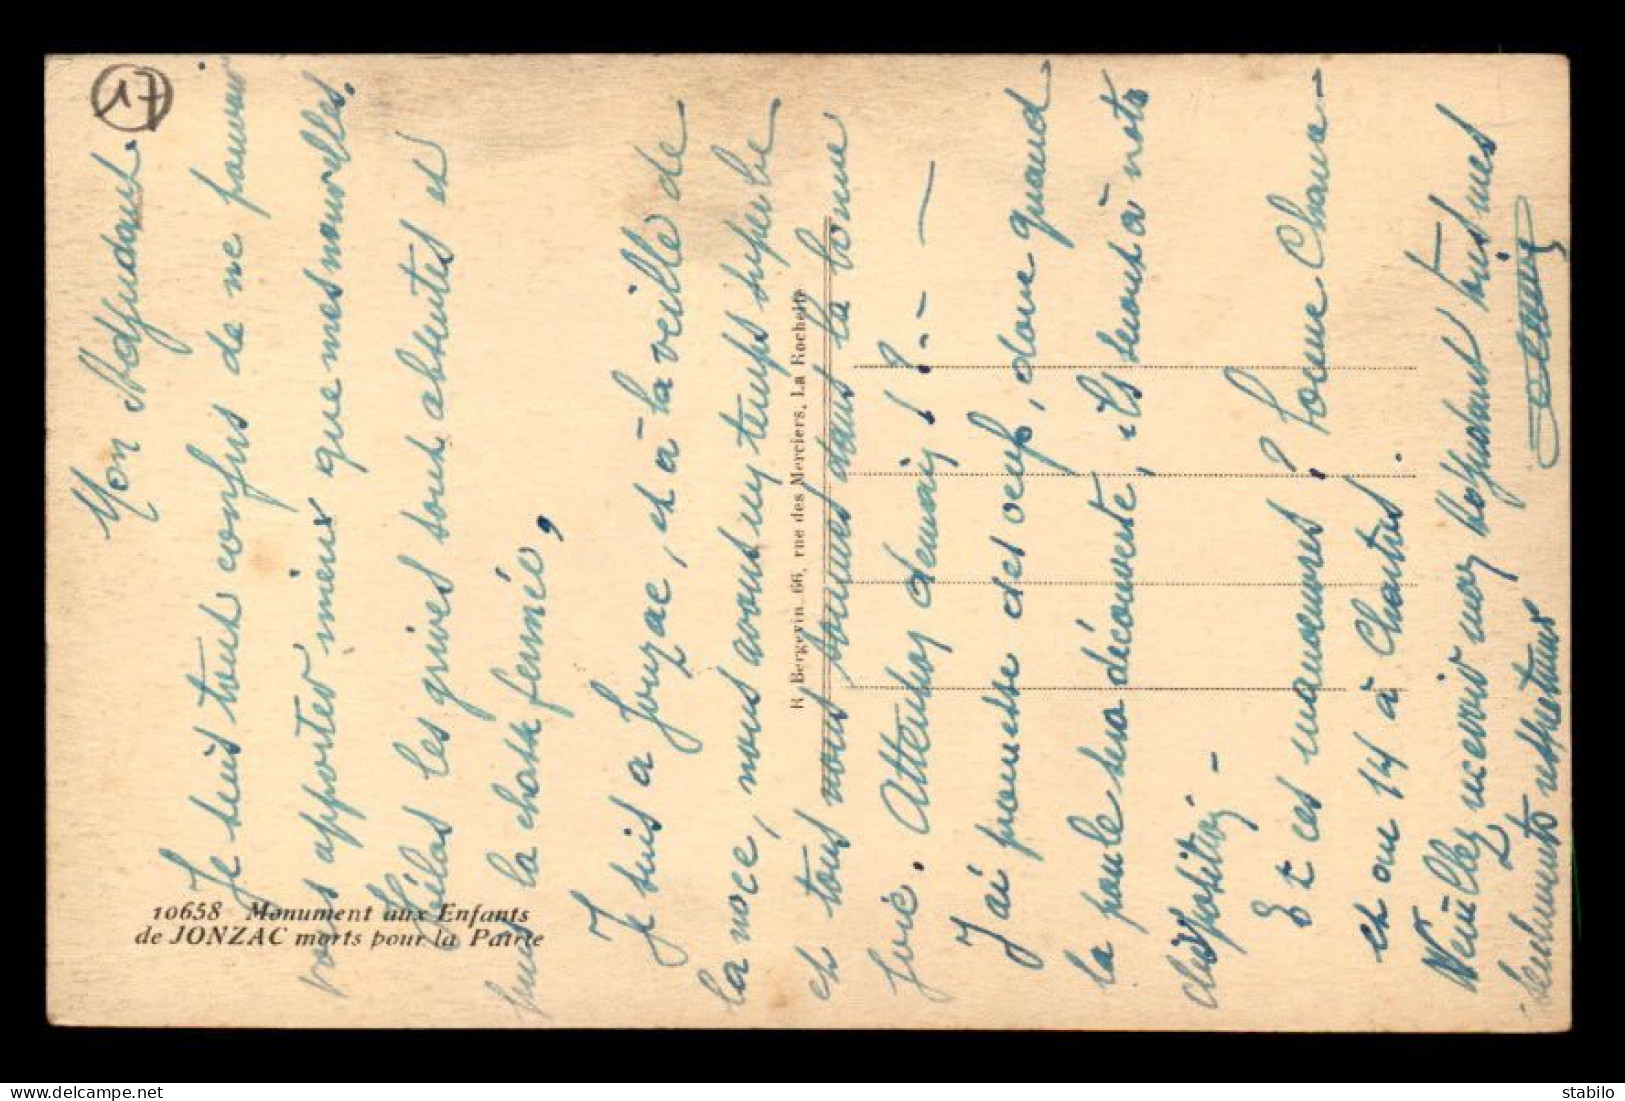 17
Mon Adjudant.
Je suis tout confus de ne pouvoir
vous apporter mieux que mes nouvelles.
Hélas les grives sont absentes et
puis la chasse fermée,
Je suis à Jonzac, et à la veille de
la noce, nous avons un temps superbe
et tous nous sommes dans la bonne
joie. Attention demain ! ? - - —
J'ai promesse des oeufs, donc quand
la poule sera découverte, ils seront à votre
disposition -
Et ces manoeuvres ? bonne Chance -
et au 14 à Chartres.
Veuillez recevoir mon Adjudant tous mes
sentiments respectueux
10658 Monument aux Enfants
de JONZAC morts pour la Patrie
R. Bergevin, 66, rue des Merciers, La Rochelle
stabilo